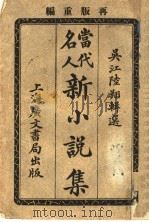 再版重編
吳江陸鄰辭選
當代名人新小說集
上海廣文書局出版